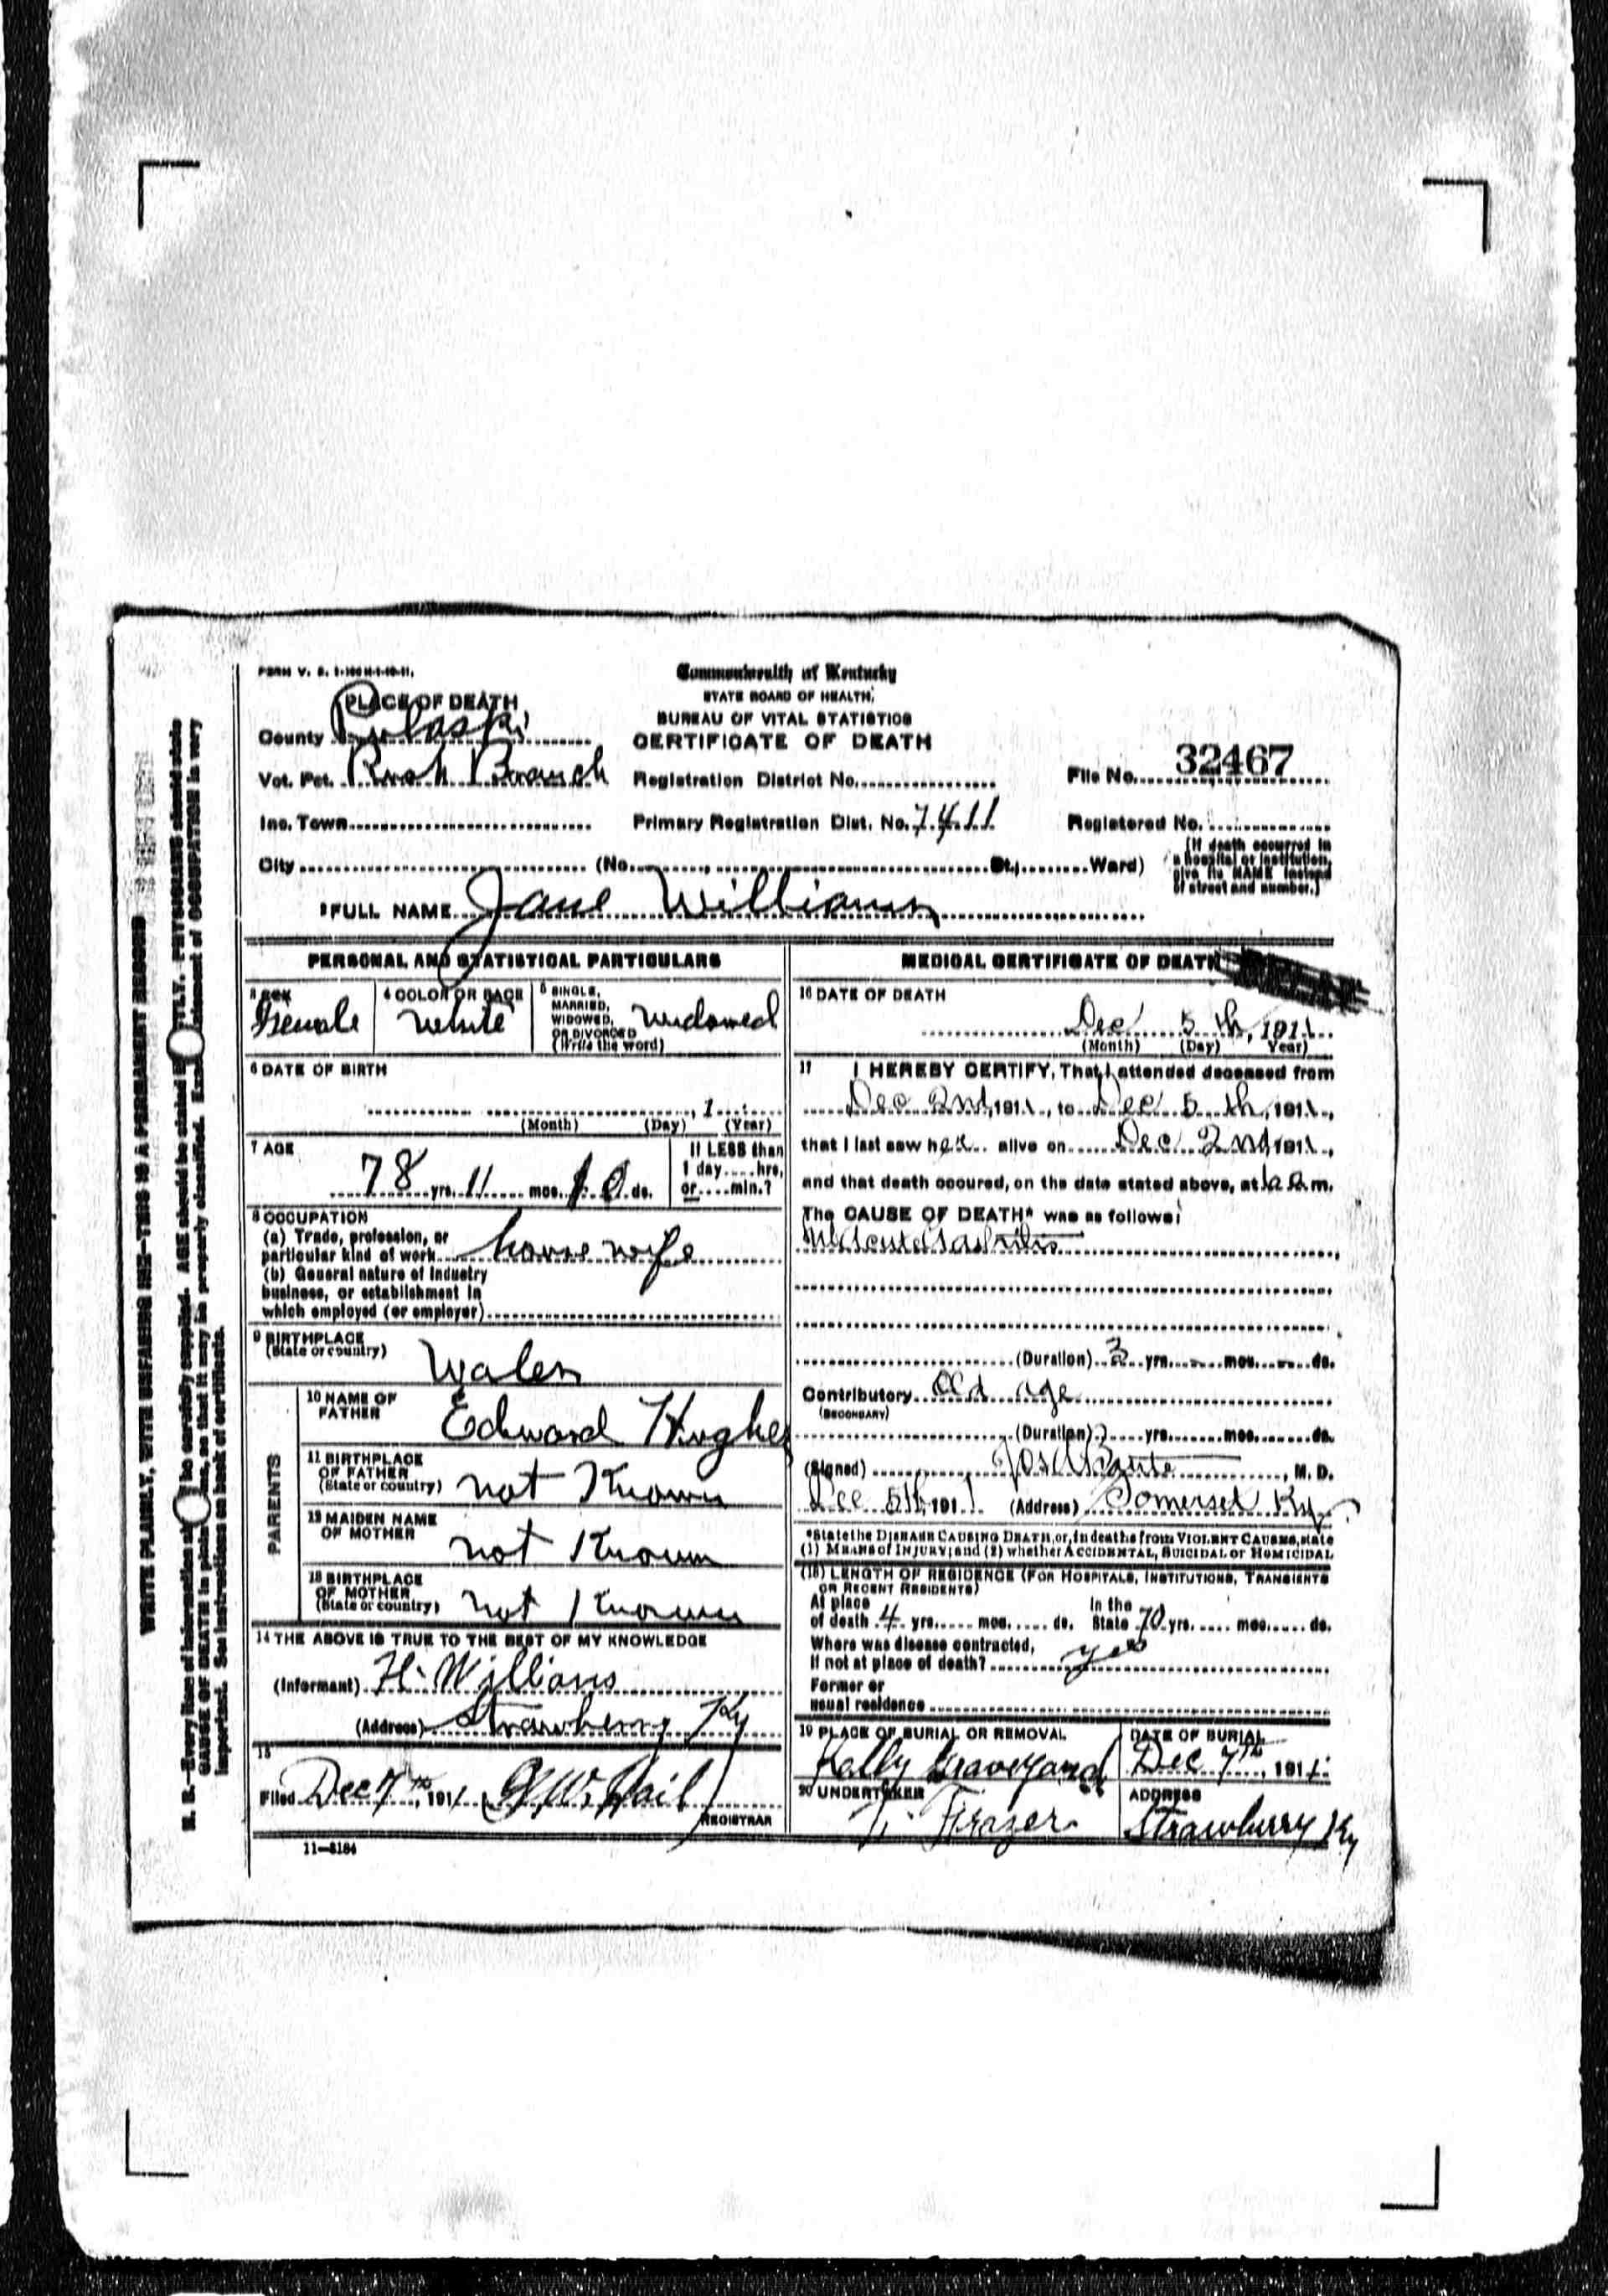 FORM V. S. 1-100 M-1-10-11.
Commonwealth of Kentucky
STATE BOARD OF HEALTH,
BUREAU OF VITAL STATISTICS
CERTIFICATE OF DEATH
PLACE OF DEATH
County Pulaski
Vot. Pct. Rush Branch
Registration District No.
File No. 32467
Inc. Town
Primary Registration Dist. No. 7411
Registered No.
City (No. St., Ward)
(If death occurred in a hospital or institution, give its NAME instead of street and number.)
2 FULL NAME Jane Williams
PERSONAL AND STATISTICAL PARTICULARS
3 SEX Female
4 COLOR OR RACE White
5 SINGLE, MARRIED, WIDOWED, OR DIVORCED (Write the word) Widowed
6 DATE OF BIRTH
, 1
(Month) (Day) (Year)
7 AGE
78 yrs. 11 mos. 10 ds.
If LESS than 1 day hrs, or min.?
8 OCCUPATION
(a) Trade, profession, or
particular kind of work house wife
(b) General nature of industry
business, or establishment in
which employed (or employer)
9 BIRTHPLACE
(State or country) Wales
PARENTS
10 NAME OF FATHER Edward Hughes
11 BIRTHPLACE OF FATHER (State or country) not Known
12 MAIDEN NAME OF MOTHER not Known
13 BIRTHPLACE OF MOTHER (State or country) not Known
14 THE ABOVE IS TRUE TO THE BEST OF MY KNOWLEDGE
(Informant) H. Williams
(Address) Strawberry Ky
15
Filed Dec 7th, 1911 G. W. Hail
REGISTRAR
11—3184
MEDICAL CERTIFICATE OF DEATH
16 DATE OF DEATH
Dec 5th, 1911
(Month) (Day) Year)
17 I HEREBY CERTIFY, That I attended deceased from
Dec 2nd, 1911, to Dec 5th, 1911,
that I last saw her alive on Dec 2nd, 1911,
and that death occured, on the date stated above, at m.
The CAUSE OF DEATH* was as follows:
(Duration) yrs. mos. ds.
Contributory Old age
(SECONDARY)
(Duration) yrs. mos. ds.
(Signed) , M. D.
Dec 5th, 1911 (Address) Somerset Ky
*State the DISEASE CAUSING DEATH, or, in deaths from VIOLENT CAUSES, state
(1) MEANS of INJURY; and (2) whether ACCIDENTAL, SUICIDAL or HOMICIDAL
(18) LENGTH OF RESIDENCE (FOR HOSPITALS, INSTITUTIONS, TRANSIENTS
OR RECENT RESIDENTS)
At place of death 4 yrs. mos. ds. In the State 70 yrs. mos. ds.
Where was disease contracted,
If not at place of death? yes
Former or
usual residence
19 PLACE OF BURIAL OR REMOVAL Kelly Graveyard
DATE OF BURIAL Dec 7th, 1911
20 UNDERTAKER Frazer
ADDRESS Strawberry Ky
WRITE PLAINLY, WITH UNFADING INK—THIS IS A PERMANENT RECORD
N. B.—Every item of information should be carefully supplied. AGE should be stated EXACTLY. PHYSICIANS should state
CAUSE OF DEATH in plain terms, so that it may be properly classified. Exact statement of OCCUPATION is very
important. See instructions on back of certificate.